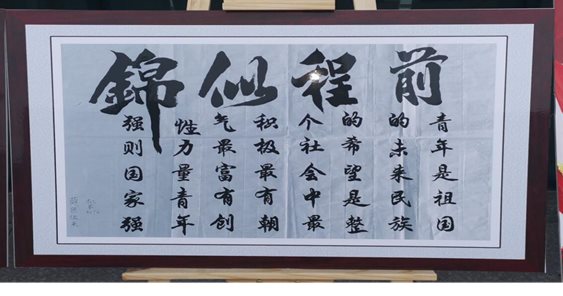 前程似錦
青年是祖国
的未来民族
的希望是整
个社会中最
积极最有朝
气最富有创
性力量青年
强则国家强